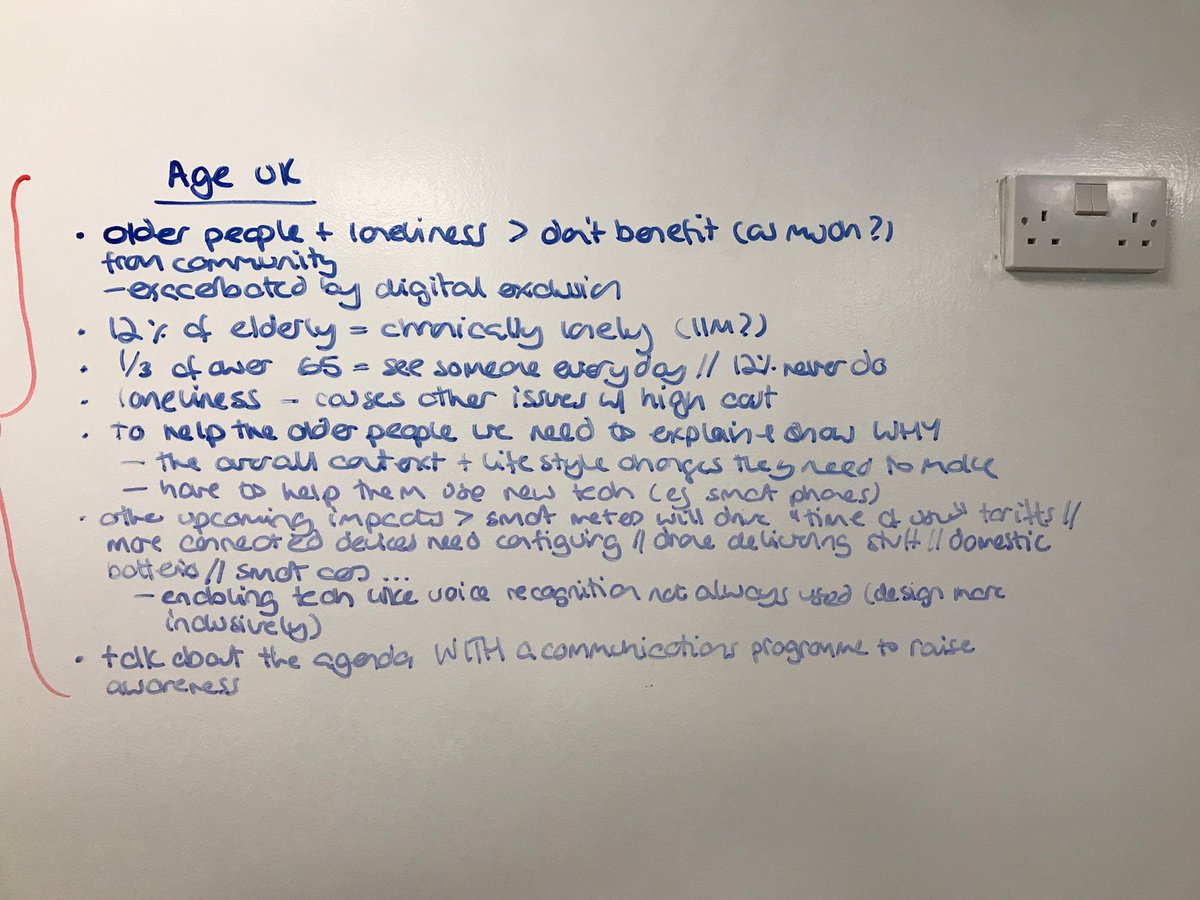 Age UK
• older people + loneliness > don't benefit (as much?)
from community
- exacerbated by digital exclusion
• 12% of elderly = chronically lonely (11M?)
• 1/3 of over 65 = see someone everyday // 12% never do
• loneliness - causes other issues w/ high cost
• to help the older people we need to explain + show WHY
- the overall context + lifestyle changes they need to make
- have to help them use new tech (eg smart phones)
• other upcoming impacts > smart meters will drive "time of use" tariffs //
more connected devices need configuring // drone delivering stuff // domestic
batteries // smart cars ...
- enabling tech like voice recognition not always used (design more
inclusively)
• talk about the agenda WITH a communications programme to raise
awareness